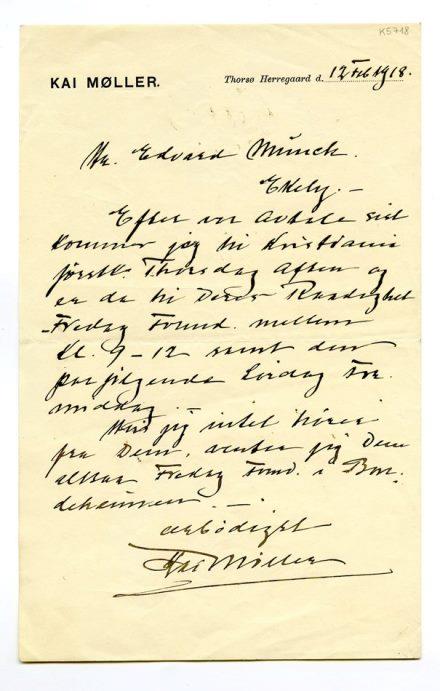 K5718
KAI MØLLER.
Thorsø Herregaard d. 12 Feb 1918.
Hr. Edvard Munck.
Ekely. –
Efter vor Avtale
kommer jeg til Kristiania
første Thorsdag Aften og
er da til Deres Raadighet
Fredag Formd. mellem
Kl. 9 – 12 samt den
paafølgende Lørdag For
middag. –
Hvis jeg intet hører
fra Dem, venter jeg Dem
altsaa Fredag Formd. i
ærbødigst
Kai Møller